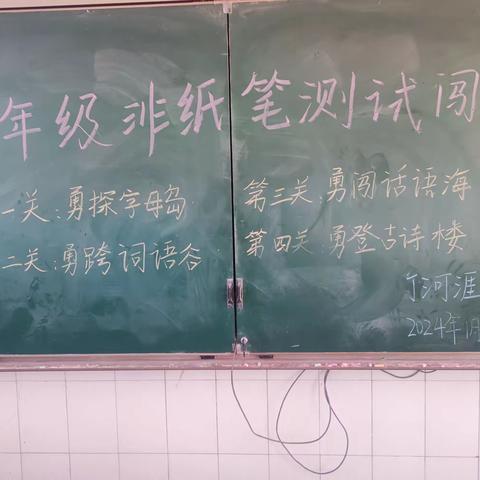 年级非纸笔测试闯
一关:勇探字母岛
第三关:勇闯话语海
二关:勇跨词语谷
第四关:勇登古诗楼
河涯
2024年1月